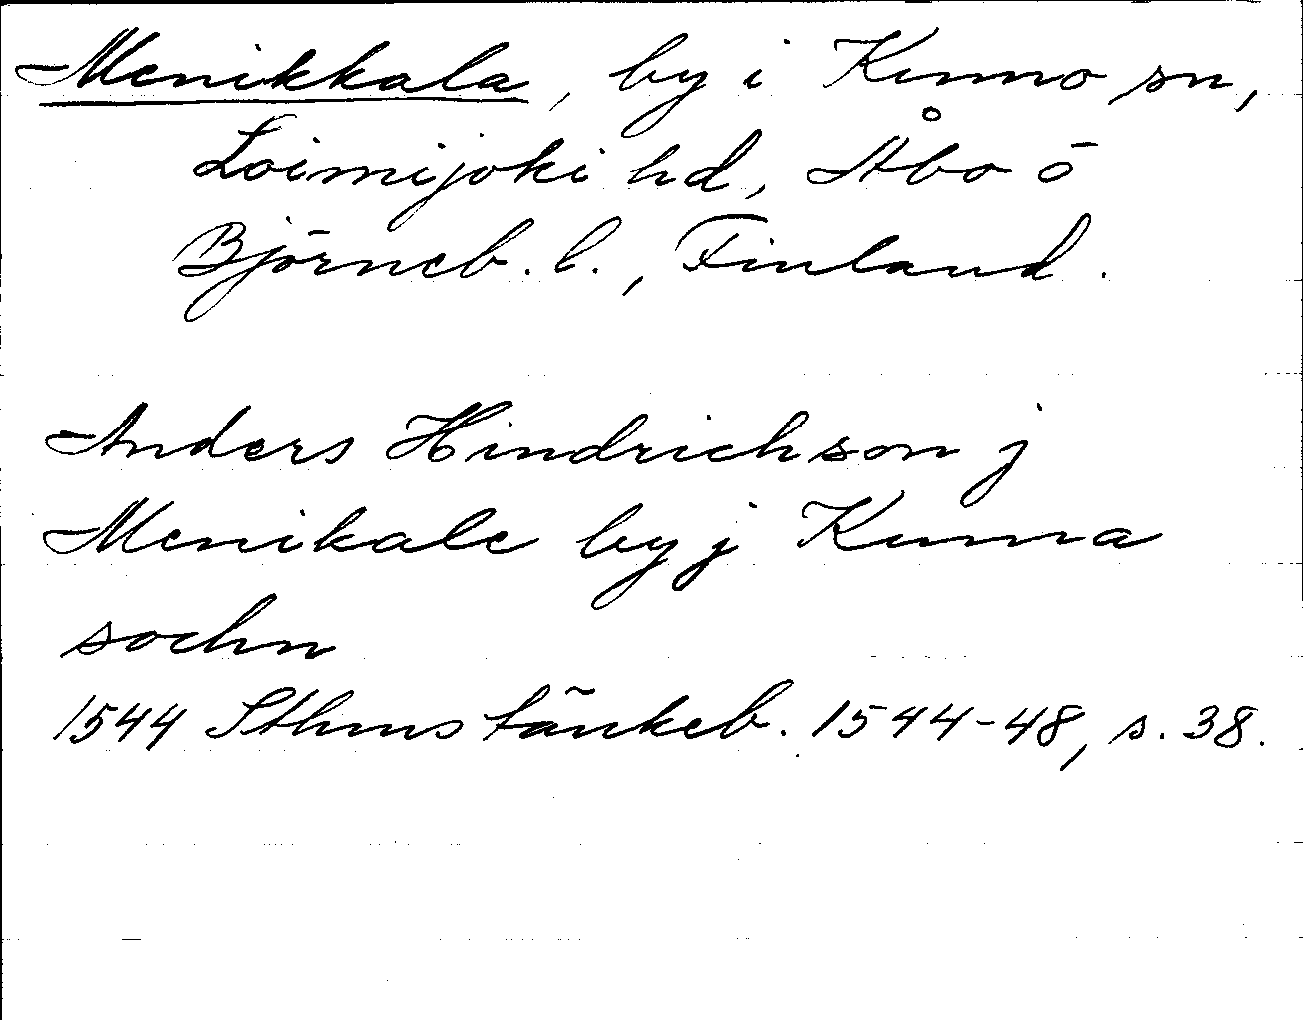 Menikkala, by i Kumo sn,
Loimijoki hd, Åbo o
Björneb. l., Finland.
Anders Hindrichson j
Menikale by j Kuma
sochn
1544 Sthms tänkeb. 1544-48, s. 38.